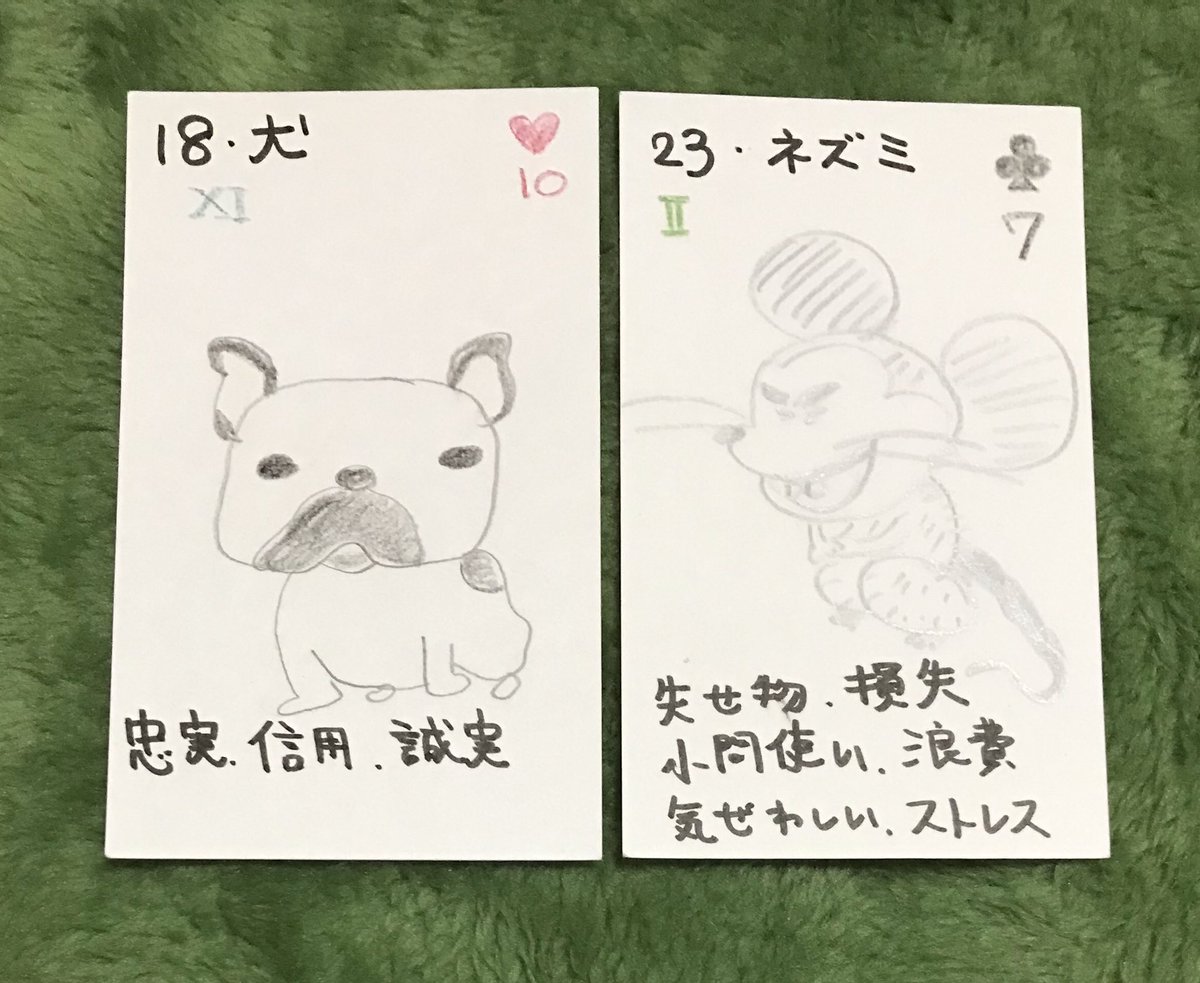 18・犬
10
XI
忠実、信用、誠実
23・ネズミ
7
II
失せ物、損失
小間使い、浪費
気ぜわしい、ストレス